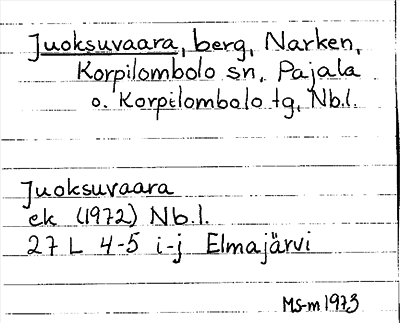 Juoksuvaara, berg, Narken,
Korpilombolo sn, Pajala
o. Korpilombolo tg, Nb.l.
Juoksuvaara
ek (1972) Nb.l.
27 L 4-5 i-j Elmajärvi
MS-m 1973